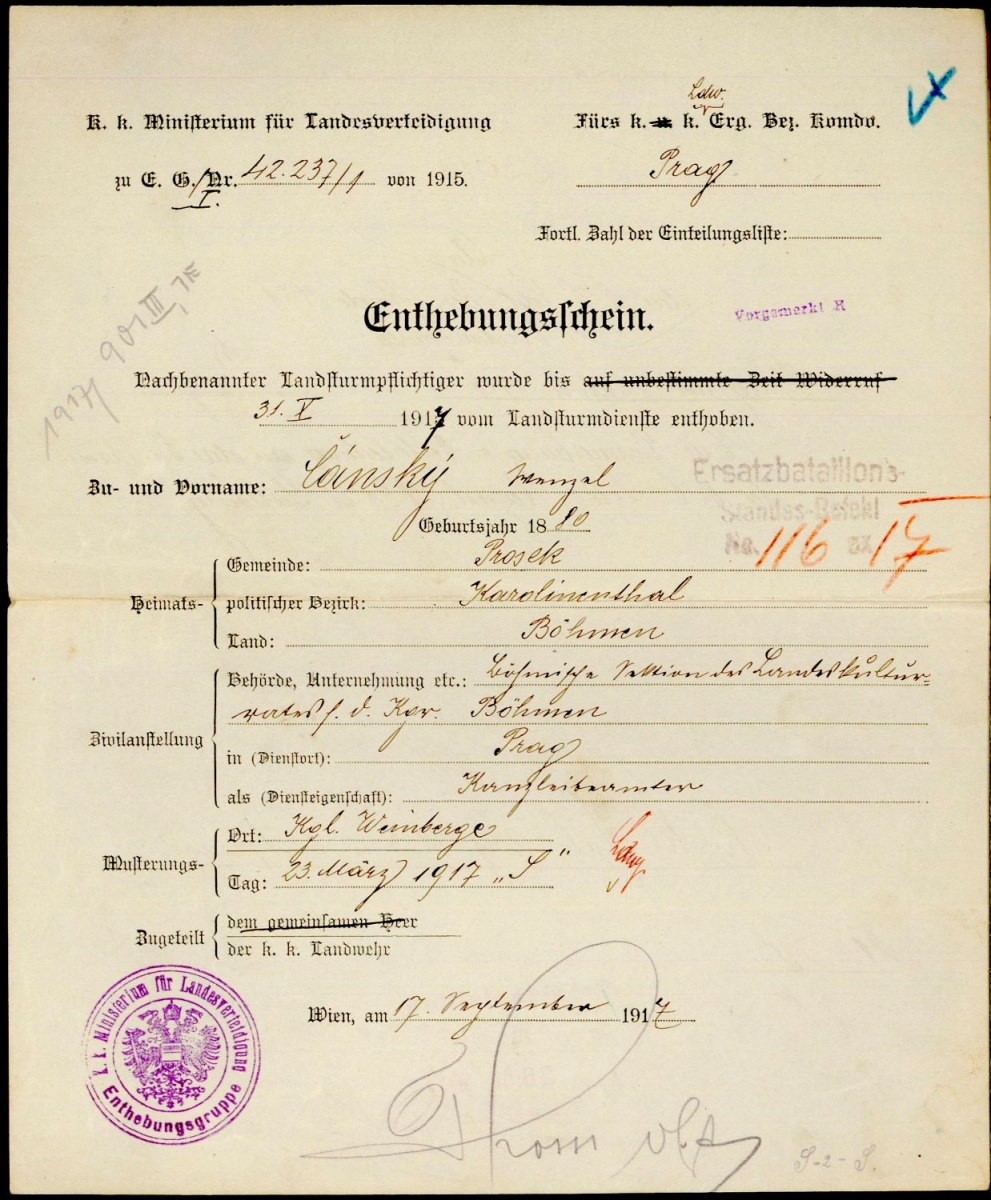 K. k. Ministerium für Landesverteidigung
zu E. G./I. Nr. 42.237/1 von 1915.
Ldw.
Fürs k. u. k. Erg. Bez. Komdo.
Prag
Fortl. Zahl der Einteilungsliste:
Enthebungsschein.
Vorgemerkt R
Nachbenannter Landsturmpflichtiger wurde bis auf unbestimmte Zeit Widerruf
31. V 1917 vom Landsturmdienste enthoben.
Zu- und Vorname: Čánský Wenzel
Ersatzbataillons-
Standes-Befehl
No. 116 ex 17
Geburtsjahr 1880
Heimats-
Gemeinde: Prosek
politischer Bezirk: Karolinenthal
Land: Böhmen
Zivilanstellung
Behörde, Unternehmung etc.: Böhmische Sektion des Landeskultur-
rates f. d. Kgr. Böhmen
in (Dienstort): Prag
als (Diensteigenschaft): Kanzleibeamter
Musterungs-
Ort: Kgl. Weinberge
Tag: 23. März 1917 „S“
Zugeteilt
dem gemeinsamen Heer
der k. k. Landwehr
Wien, am 17. September 1917
K. k. Ministerium für Landesverteidigung
Enthebungsgruppe
S-2-S.